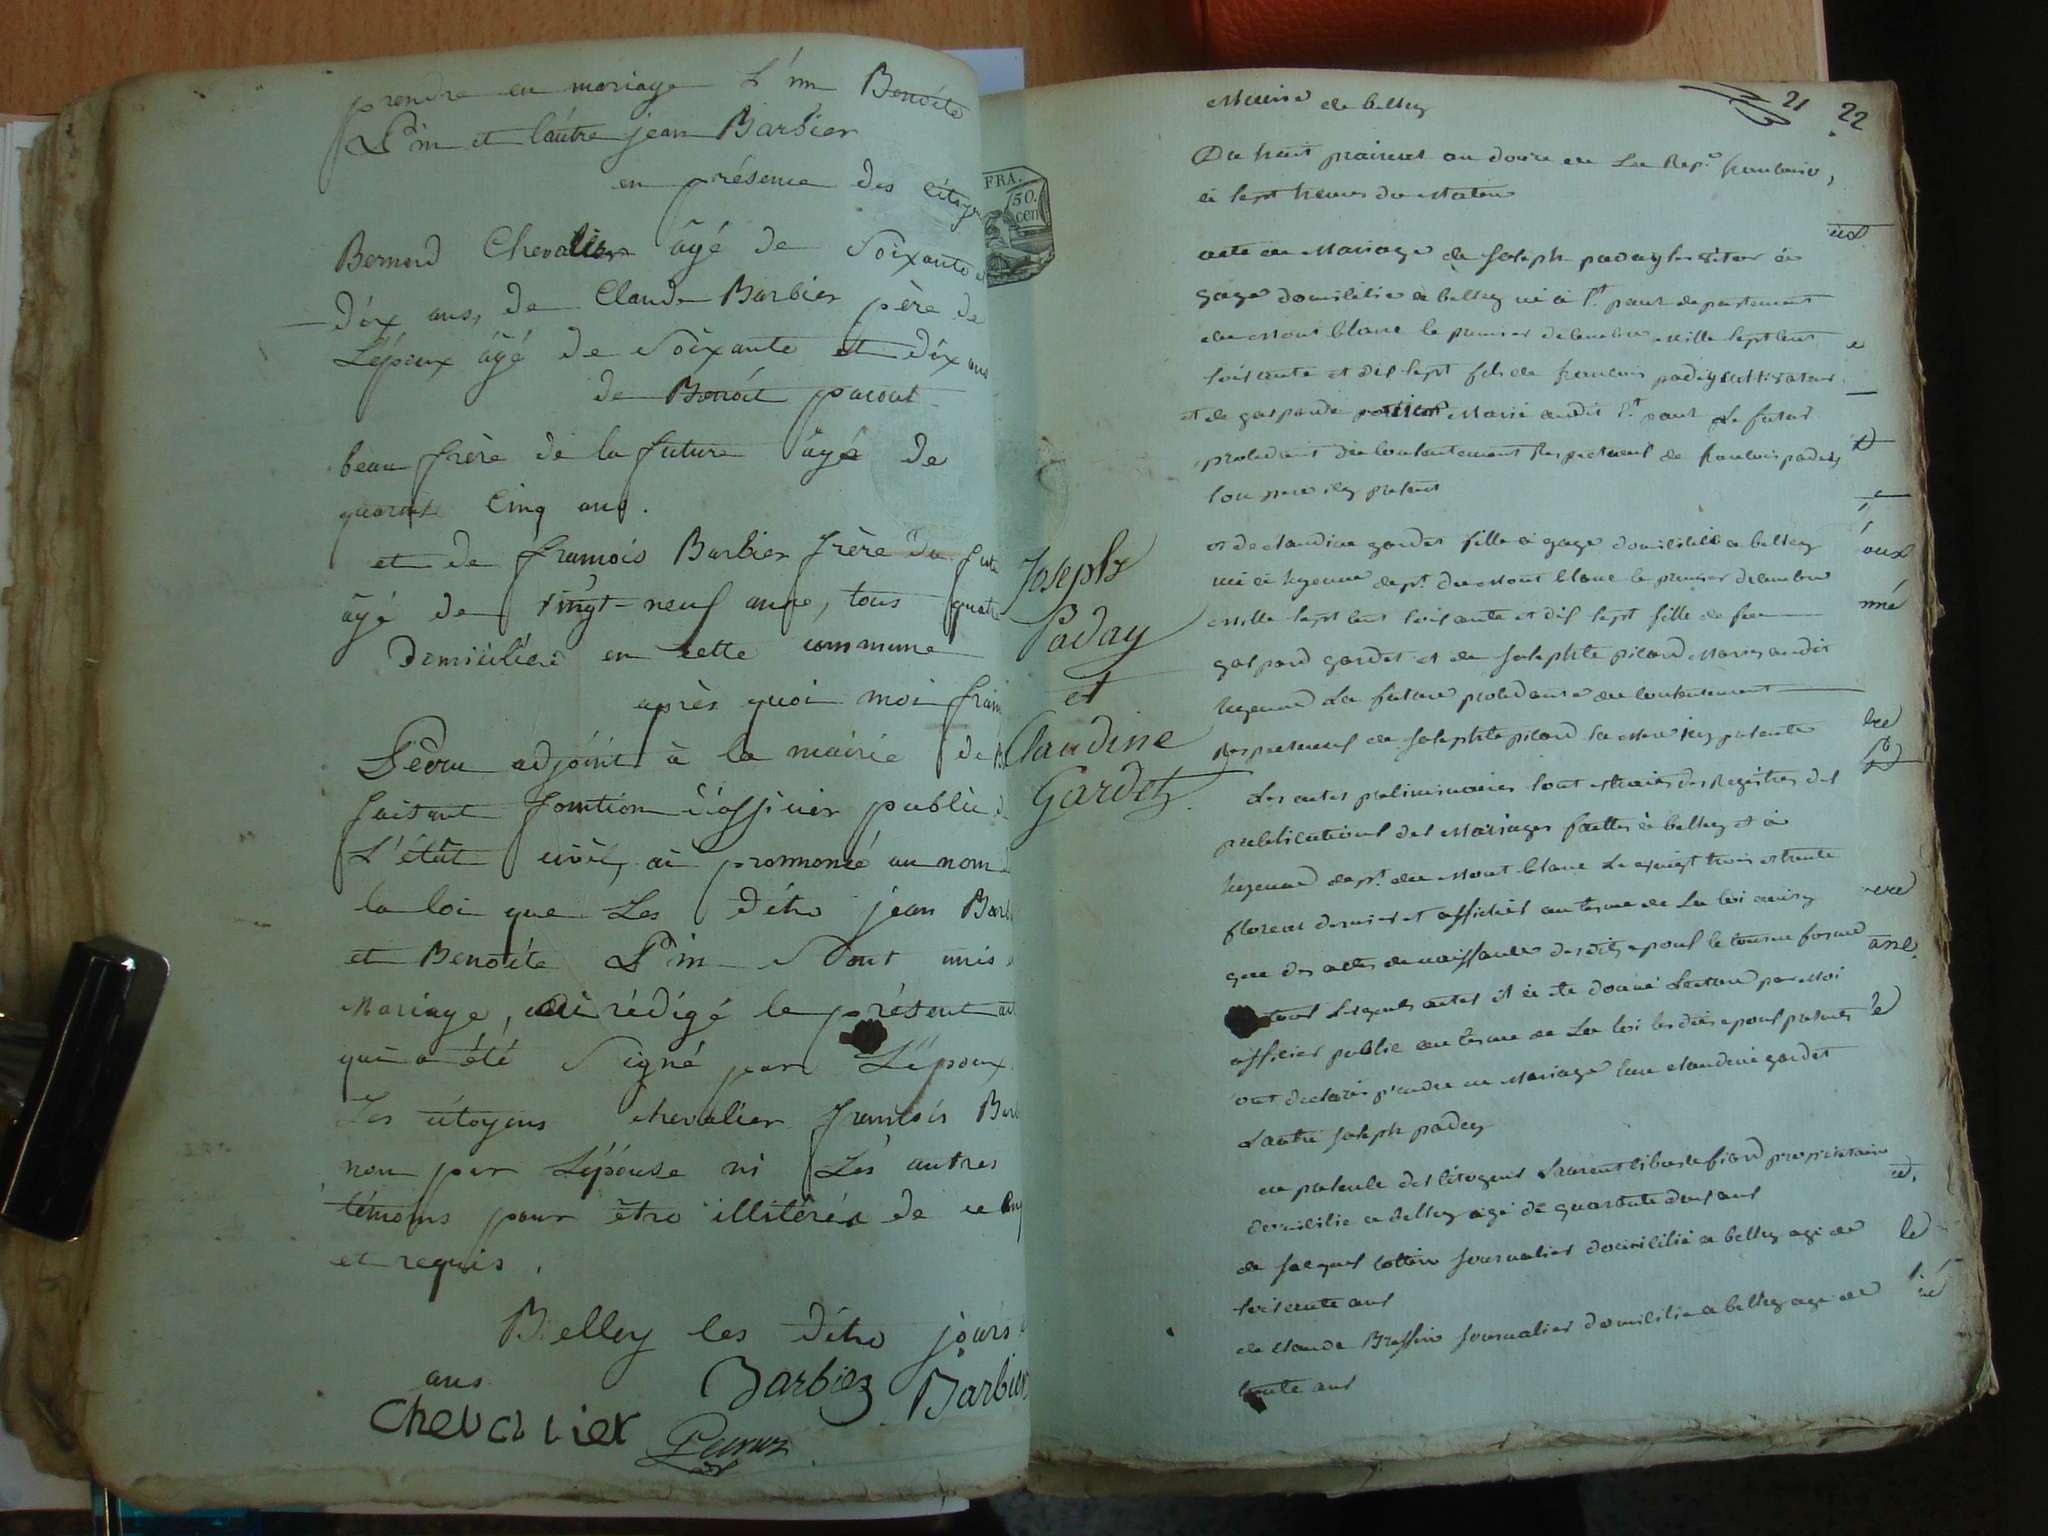 prendre en mariage L'un Benoîte
Pin et l'autre jean Barbier
en présence des citoy
Bernard Chevalier âgé de Soixante
dix ans, de Claude Barbier père de
L'époux âgé de Soixante et dix ans
de Benoit pacout
beau frère de la future âgé de
quarante Cinq ans.
et de françois Barbier frère du futu
âgé de vingt-neuf anns, tous quatre
Domiciliés en cette commune
après quoi moi fran
adjoint à la mairie de B
faisant fonction d'officier public d
L'état civil, ai prononcé au nom d
la loi que Les dits jean Barb
et Benoîte Pin Sont unis
Mariage, ai rédigé le présent act
qui a été Signé par L'époux
Les citoyens chevalier françois Barb
non par L'épouse ni Les autres
témoins pour être illitérés de ce enq
et requis.
Belley les dits jours
ans
Barbier Barbier
Chevalier
FRA.
50.
cen
21 22
Mairie de belley
Du huit prairial an douze de La Rep.e francaise,
à sept heures du Matin
acte de Mariage de Joseph paday à
gage domicilié à belley né à St paul departement
du Mont blanc le premier decembre mille sept cent
soisante et dix sept fils de francois paday cultivateur
et de gasparde Marié audit St paul Le futur
procedant du consentement Respectueux de francois paday
son pere icy present
et de claudine gardet fille à gage domiciliée a belley
née à hyenne dept du Mont blanc le premier decembre
mille sept cent soisante et dix sept fille de feu
gaspard gardet et de Josephte picard Mariés audit
hyenne La future procedante du consentement
Respectueux de Josephte picard sa Mere icy presente
Les actes preliminaires sont extraits des Registres des
publications des Mariages faittes à belley et à
hyenne dept du Mont blanc Le vingt trois et trente
floreal dernier et affichés au terme de La loi ainsy
que des actes de naissance desdits epoux le tout en forme
tous Lesquels actes il a ete donné Lecture par Moi
officier public au terme de La loi lesdits epoux presents
ont declarés prendre en Mariage l'une claudine gardet
L'autre Joseph paday
en presence des citoyens Laurent proprietaire
domicilié a belley agé de quarante deux ans
de Jacques cottin Journalier domicilié a belley agé de
soisante ans
de claude Bressin Journalier domicilié a belley agé de
trente ans
Joseph
Paday
et
Claudine
Gardet